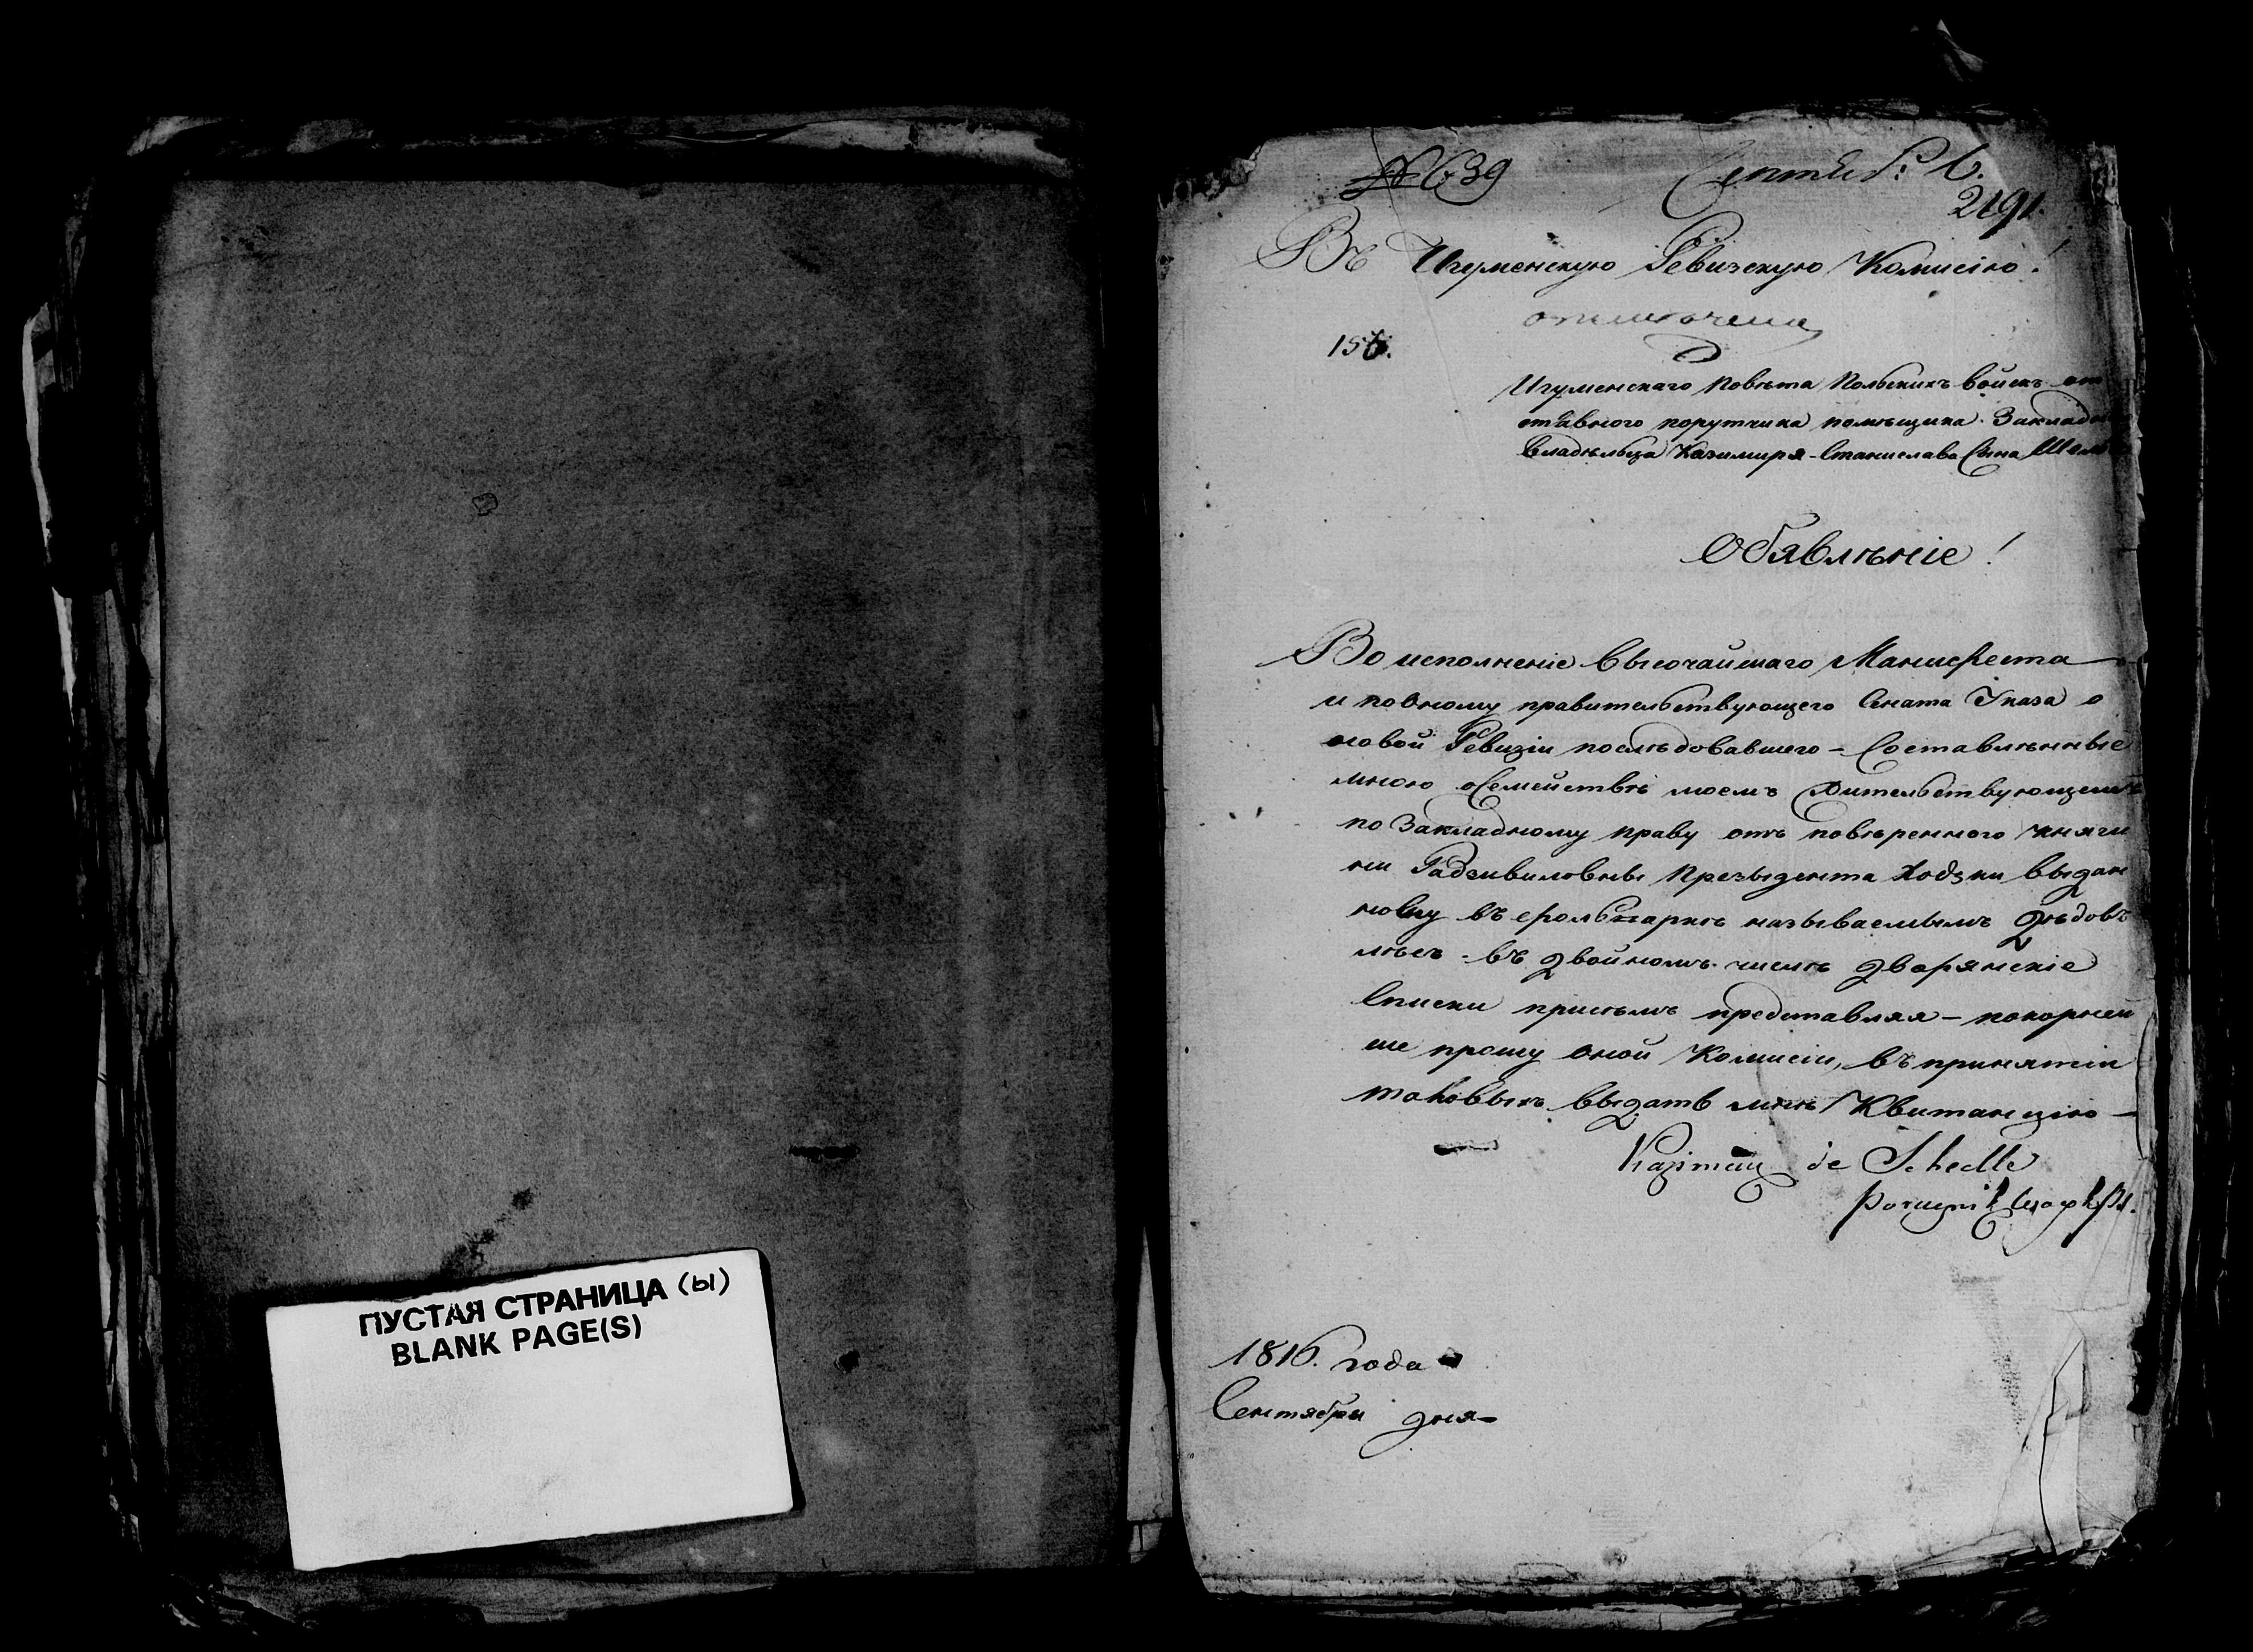 ПУСТАЯ СТРАНИЦА (ы)
BLANK PAGE(S)
№ 639
Сентяб: 6.
2191.
Въ Игуменскую Ревизскую Комисію!
156.
Игуменскаго Повѣта Польскихъ войскъ от
ставного порутчика помѣщика Закладо
владѣльца Казимиря Станислава Сына Шел
Обявлѣніе!
Во исполненіе высочайшаго Манифеста
и по оному правительствующего Сената Указа о
новой Ревизіи послѣдовавшего – Составлѣнные
мною о Семействѣ моемъ Жительствующемъ
по Закладному праву отъ повѣренного Княги
ни Радзивиловны Презыдента Ходзки выдан
ному въ называемымъ Дѣдовъ
лѣсъ – въ двойномъ числѣ дворянскіе
Списки присѣмъ представляя – покорнѣй
ше прошу оной Комисіи, въ принятіи
таковыхъ выдать мнѣ Квитанцію –
Kazimierz de Schedle
Porucznik
1816. года
Сентября дня –